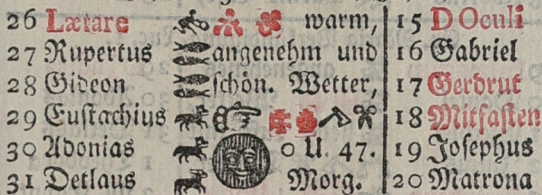 26 Lætare warm, 15 D Oculi
27 Rupertus angenehm und 16 Gabriel
28 Gideon ſchön. Wetter, 17 Gerdrut
29 Euſtachius 18 Mitfaſten
30 Adonias 0 U. 47. 19 Joſephus
31 Detlaus Morg. 20 Matrona